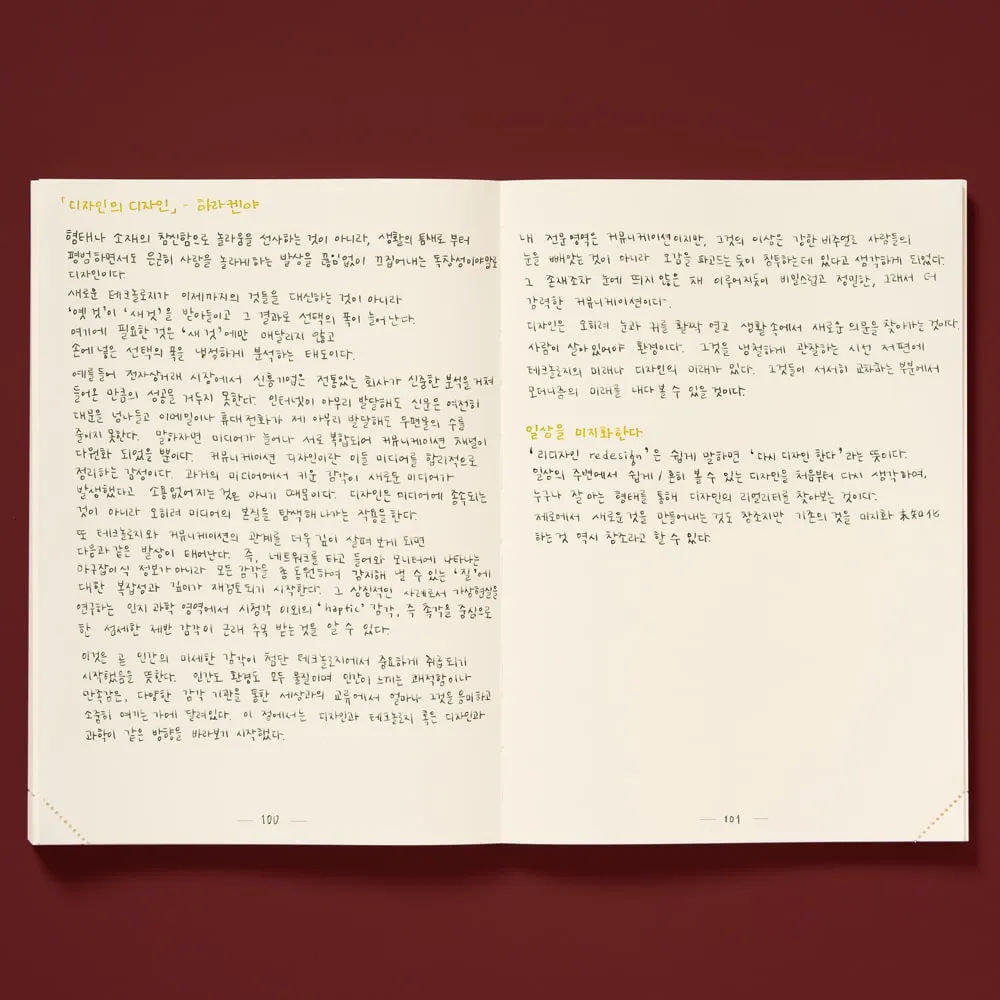 「디자인의 디자인」 - 하라켄야
형태나 소재의 참신함으로 놀라움을 선사하는 것이 아니라, 생활의 틈새로 부터
평범하면서도 은근히 사람을 놀라게하는 발상을 끊임없이 끄집어내는 독창성이야말로
디자인이다
새로운 테크놀로지가 이제까지의 것들을 대신하는 것이 아니라
'옛 것'이 '새것'을 받아들이고 그 결과로 선택의 폭이 늘어난다.
여기에 필요한 것은 '새 것'에만 매달리지 않고
손에 넣은 선택의 폭을 냉정하게 분석하는 태도이다.
예를들어 전자상거래 시장에서 신흥기업은 전통있는 회사가 신중한 분석을 거쳐
들어온 만큼의 성공을 거두지 못한다. 인터넷이 아무리 발달해도 신문은 여전히
대문을 넘나들고 이메일이나 휴대전화가 제 아무리 발달해도 우편물의 수를
줄이지 못한다. 말하자면 미디어가 늘어나 서로 복합되어 커뮤니케이션 채널이
다원화 되었을 뿐이다. 커뮤니케이션 디자인이란 이들 미디어를 합리적으로
정리하는 감성이다. 과거의 미디어에서 키운 감각이 새로운 미디어가
발생했다고 소용없어지는 것은 아니기 때문이다. 디자인은 미디어에 종속되는
것이 아니라 오히려 미디어의 본질을 탐색해 나가는 작용을 한다.
또 테크놀로지와 커뮤니케이션의 관계를 더욱 깊이 살펴 보게 되면
다음과 같은 발상이 태어난다. 즉, 네트워크를 타고 들어와 모니터에 나타나는
마구잡이식 정보가 아니라 모든 감각을 총 동원하여 감지해 낼 수 있는 '질'에
대한 복잡성과 깊이가 재검토되기 시작한다. 그 상징적인 사례로서 가상현실을
연구하는 인지 과학 영역에서 시청각 이외의 'haptic' 감각, 즉 촉각을 중심으로
한 섬세한 제반 감각이 근래 주목 받는 것을 알 수 있다.
이것은 곧 인간의 미세한 감각이 첨단 테크놀로지에서 중요하게 취급 되기
시작했음을 뜻한다. 인간도 환경도 모두 물질이며 인간이 느끼는 쾌적함이나
만족감은, 다양한 감각 기관을 통한 세상과의 교류에서 얼마나 그것을 음미하고
소중히 여기는 가에 달려있다. 이 점에서는 디자인과 테크놀로지 혹은 디자인과
과학이 같은 방향을 바라보기 시작했다.
100
내 전문영역은 커뮤니케이션이지만, 그것의 이상은 강한 비주얼로 사람들의
눈을 빼앗는 것이 아니라 오감을 파고드는 듯이 침투하는데 있다고 생각하게 되었다.
그 존재조차 눈에 띄지 않은 채 이루어지듯이 비밀스럽고 정밀한, 그래서 더
강력한 커뮤니케이션이다.
디자인은 오히려 눈과 귀를 활짝 열고 생활 속에서 새로운 의문을 찾아가는 것이다.
사람이 살아있어야 환경이다. 그것을 냉철하게 관찰하는 시선 저편에
테크놀로지의 미래나 디자인의 미래가 있다. 그것들이 서서히 교차하는 부분에서
모더니즘의 미래를 내다 볼 수 있을 것이다.
일상을 미지화한다.
'리디자인 redesign'은 쉽게 말하면 '다시 디자인 한다'라는 뜻이다.
일상의 주변에서 쉽게 / 흔히 볼 수 있는 디자인을 처음부터 다시 생각하여,
누구나 잘 아는 형태를 통해 디자인의 리얼리티를 찾아보는 것이다.
제로에서 새로운 것을 만들어내는 것도 창조지만 기존의 것을 미지화 未知化
하는 것 역시 창조라고 할 수 있다.
101